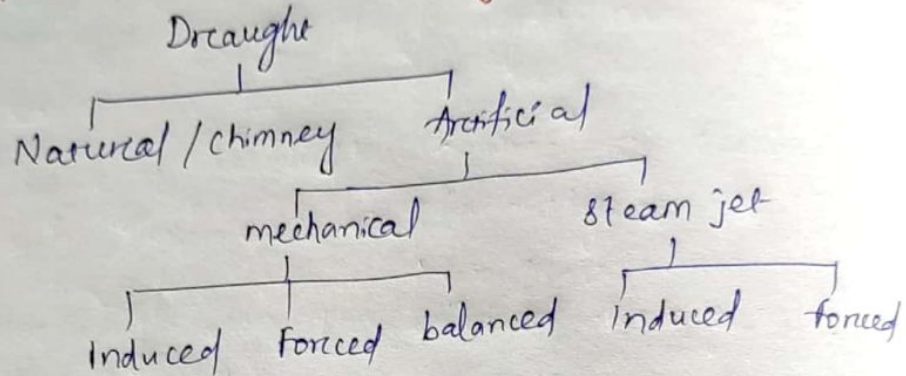 Draught
Natural / chimney Artificial
mechanical steam jet
Induced Forced balanced induced forced